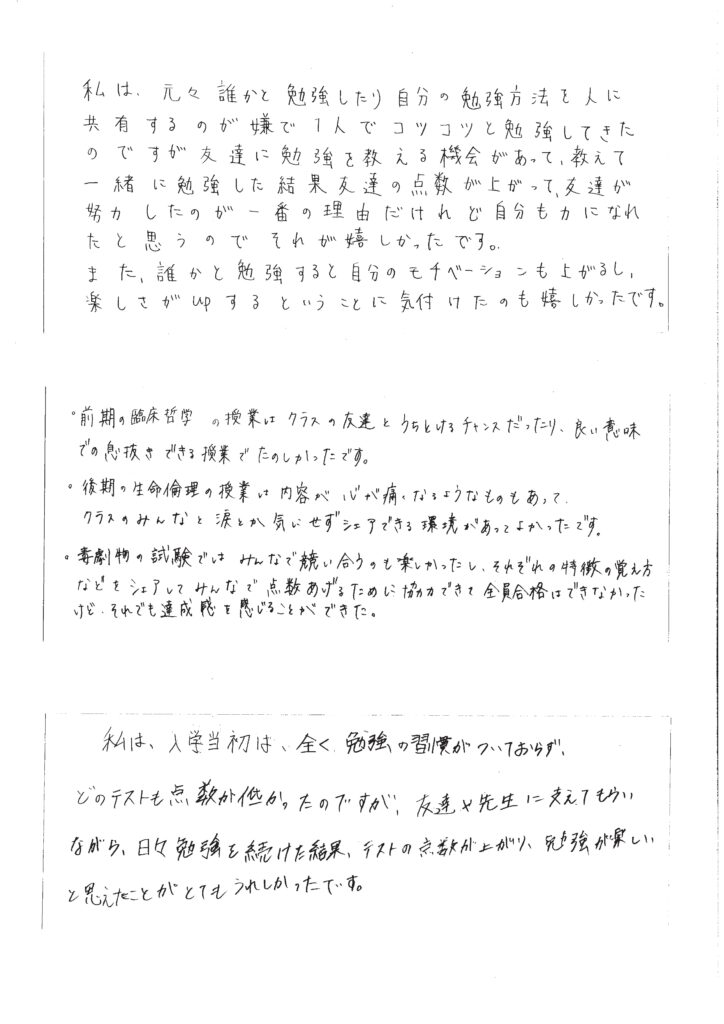 私は、元々誰かと勉強したり自分の勉強方法を人に
共有するのが嫌で1人でコツコツと勉強してきた
のですが友達に勉強を教える機会があって、教えて
一緒に勉強した結果友達の点数が上がって、友達が
努力したのが一番の理由だけれど自分も力になれ
たと思うのでそれが嬉しかったです。
また、誰かと勉強すると自分のモチベーションも上がるし、
楽しさがupするということに気付けたのも嬉しかったです。
・前期の臨床哲学の授業はクラスの友達とうちとけるチャンスだったり、良い意味
での息抜きできる授業でたのしかったです。
・後期の生命倫理の授業は内容が心が痛くなるようなものもあって、
クラスのみんなと涙とか気にせずシェアできる環境があってよかったです。
・毒劇物の試験ではみんなで競い合うのも楽しかったし、それぞれの特徴の覚え方
などをシェアしてみんなで点数あげるために協力できて全員合格はできなかった
けど、それでも達成感を感じることができた。
私は、入学当初は、全く勉強の習慣がついておらず、
どのテストも点数が低かったのですが、友達や先生に支えてもらい
ながら、日々勉強を続けた結果、テストの点数が上がり、勉強が楽しい
と思えたことがとてもうれしかったです。